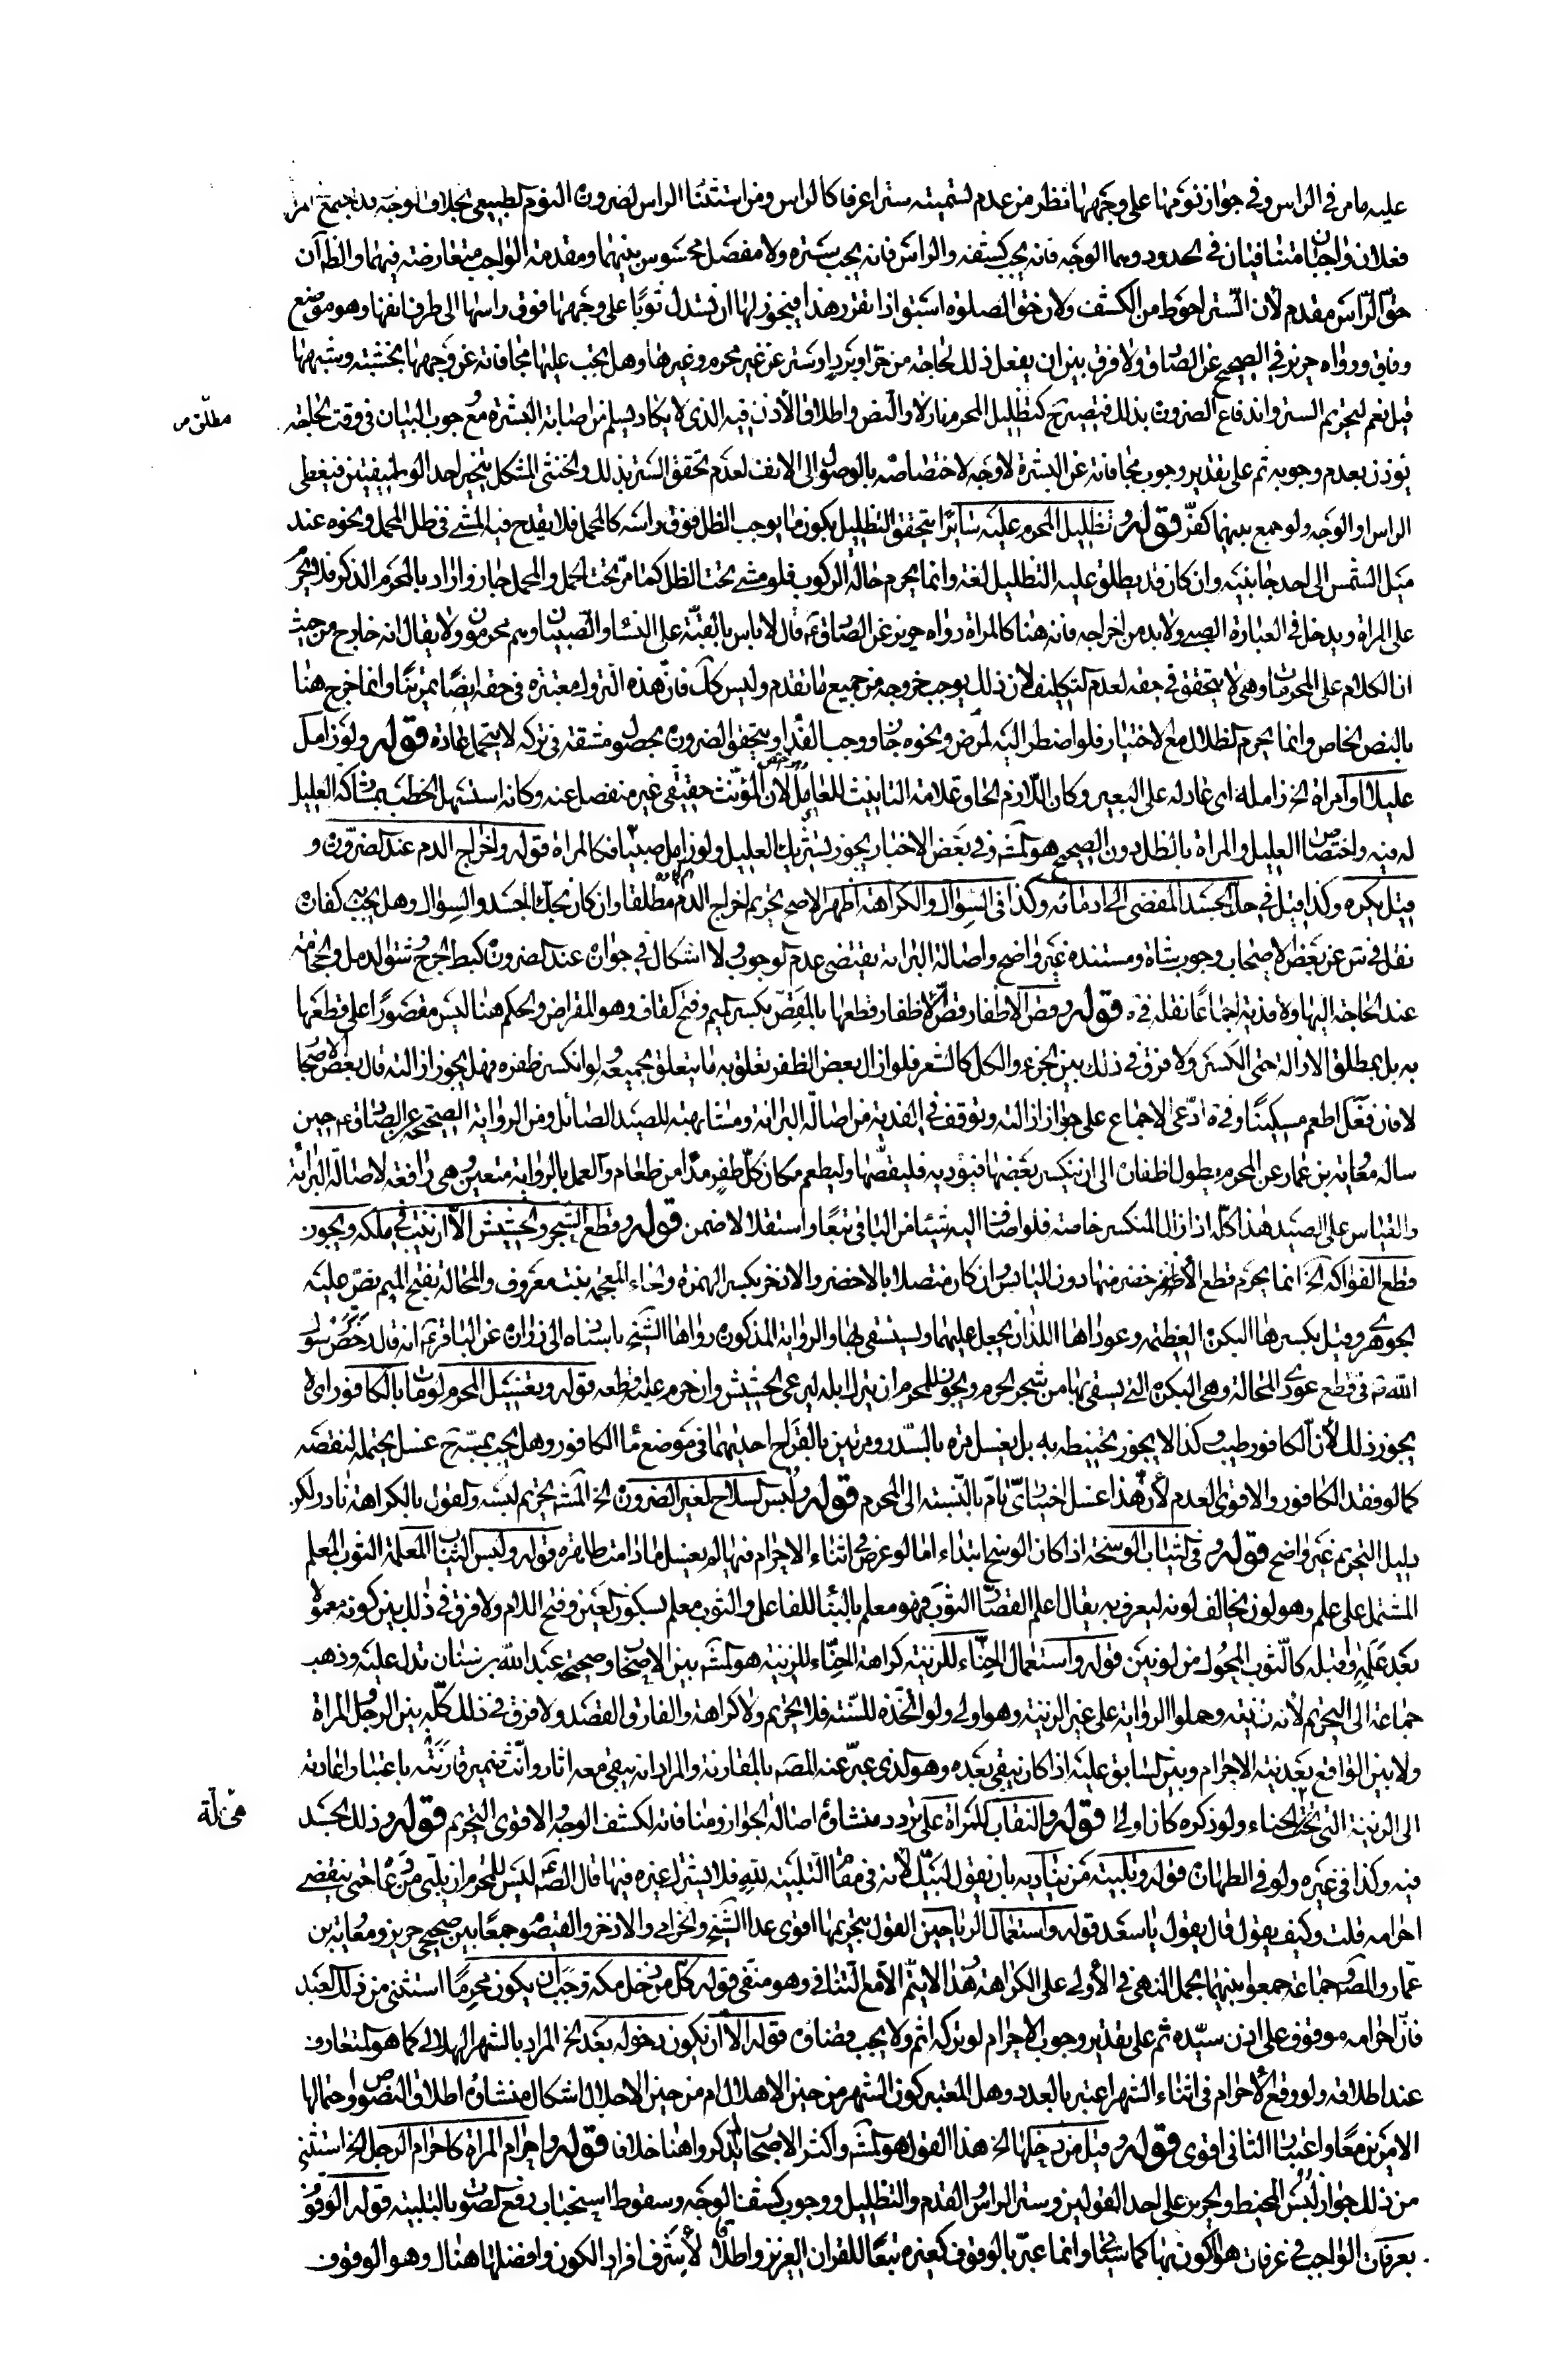 عليه مامر في الراس وفي جواز نومها على وجهها نظر من عدم تسميته سترا عرفا كالراس ومن استثناء الراس لضرورة النوم الطبيعي بخلاف الوجه فقد اجتمع
فعلان واجبان متنافيان في الحدود وهما الوجه فانه يجب كشفه والراس فانه يجب ستره ولا مفصل محسوس بينهما ومقدمة الواجب متعارضة فيهما والظ ان
حق الراس مقدم لان الستر احوط من الكشف ولان حق الصلوة اسبق اذا تقرر هذا فيجوز لها ان تسدل ثوبا على وجهها فوق راسها الى طرف انفها وهو موضع
وفاق ورواه حريز في الصحيح عن الصادق ولا فرق بين ان يفعل ذلك لحاجة من حر او برد او ستر عن غير محرم وغيرها وهل يجب عليها مجافاته عن وجهها بخشبة وشبهها
قيل نعم لتحريم الستر واندفاع الضرورة بذلك فيصير ح كتظليل المحرم نازلا والنص واطلاق الاذن فيه الذي لا يكاد يسلم من اصابة البشرة مع وجوب البيان في وقت الحاجة
مطلق من
يؤذن بعدم وجوبه ثم على تقدير وجوب مجافاته عن البشرة لا وجه لاختصاصه بالوصول الى الانف لعدم تحقق الستر بذلك والخنثى المشكل يتخير احد الوظيفتين فيغطي
الراس او الوجه ولو جمع بينهما كفر قوله وتظليل المحرم عليه سايرا يتحقق التظليل بكون ما يوجب الظل فوق راسه كالمحمل فلا يقدح فيه المشي في ظل المحمل ونحوه عند
ميل الشمس الى احد جانبيه وان كان قد يطلق عليه التظليل لغة وانما يحرم حالة الركوب فلو مشى تحت الظل كما مر تحت الحمل والمحمل جاز واراد بالمحرم الذكر فلا يحرم
على المراة ويدخل في العبارة الصبي ولا بد من اخراجه فانه هنا كالمراة رواه حريز عن الصادق ع قال لا باس بالقبة على النساء والصبيان وهم محرمون ولا يقال انه خارج من حيث
ان الكلام على المحرمات وهي لا تتحقق في حقه لعدم التكليف لان ذلك يوجب خروجه من جميع ما تقدم وليس كك فان هذه التروك معتبرة في حقه ايضا تمرينا وانما خرج هنا
بالنص الخاص وانما يحرم الظلال مع الاختيار فلو اضطر اليه لمرض ونحوه جاز ووجب الفداء ويتحقق الضرورة بحصول مشقة في تركه لا يتحمل عادة قوله ولو زامل
عليلا او امراة الخ زامله اى عادله على البعير وكان اللازم الحاق علامة التانيث للعامل لان المؤنث حقيقي غير منفصل عنه وكانه استسهل الخطب بمشاركة العليل
له فيه واختصاص العليل والمراة بالظل دون الصحيح هو المشهور وفي بعض الاخبار يجوز تشريك العليل ولو زامل صبيا فكالمراة قوله واخراج الدم عند الضرورة و
قيل يكره وكذا قيل في حك الجسد المفضي الى ادمائه وكذا في السواك والكراهة اظهر الاصح تحريم اخراج الدم مطلقا وان كان بحك الجسد والسواك وهل يجب به كفارة
نقل في س عن بعض الاصحاب وجوب شاة ومستنده غير واضح واصالة البراءة يقتضي عدم الوجوب ولا اشكال في جوازه عند الضرورة كبط الجرح وشق الدمل والحجامة
عند الحاجة اليها ولا فدية اجماعا نقله في ه قوله وقص الاظفار قص الاظفار قطعها بالمقص بكسر الميم وفتح القاف وهو المقراض والحكم هنا ليس مقصورا على قطعها
به بل بمطلق الازالة حتى الكسر ولا فرق في ذلك بين الجزء والكل كالشعر فلو ازال بعض الظفر تعلق به ما يتعلق بجميعه ولو انكسر ظفره فهل يجوز ازالته قال بعض الاصحاب
لا فان فعل اطعم مسكينا وفي ه ادعى الاجماع على جواز ازالته وتوقف في الفدية من اصالة البراءة ومشابهته للصيد الصائل ومن الرواية الصحيحة عن الصادق ع حين
ساله معاوية بن عمار عن المحرم يطول اظفاره الى ان ينكسر بعضها فيؤذيه فليقصها وليطعم مكان كل ظفر مدا من طعام والعمل بالرواية متعين وهي رافعة لاصالة البراءة
والقياس على الصيد هذا كله اذا ازال المنكسر خاصة فلو اضاف اليه شيئا من الباقي تبعا واستقلالا ضمن قوله وقطع الشجر والحشيش الا ان ينبت في ملكه ويجوز
قطع الفواكه الخ انما يحرم قطع الاخضر منها دون اليابس وان كان متصلا بالاخضر والاذخر بكسر الهمزة والخاء المعجمة نبت معروف والمحالة بفتح الميم نص عليه
الجوهري وقيل بكسرها البكرة العظيمة وعوداها اللذان يجعل عليهما ويستقى بها والرواية المذكورة رواها الشيخ باسناده الى زرارة عن الباقر ع انه قال رخص رسول
الله ص في قطع عودي المحالة وهي البكرة التي يسقى بها من شجر الحرم ويجوز للمحرم ان يترك ابله ليرعى الحشيش وان حرم عليه قطعه قوله وتغسيل المحرم لو مات بالكافور اى لا
يجوز ذلك لان الكافور طيب وكذا لا يجوز تحنيطه به بل يغسل مرة بالسدر ومرتين بالقراح احديهما في موضع ماء الكافور وهل يجب بمسه ح غسل يحتمله لنقصه
كما لو فقد الكافور والاقوى العدم لان هذا غسل اختياري تام بالنسبة الى المحرم قوله ولبس السلاح لغير الضرورة الخ المشهور تحريم لبسه والقول بالكراهة نادر ولكن
دليل التحريم غير واضح قوله وفي الثياب الوسخة اذا كان الوسخ ابتداء اما لو عرض في اثناء الاحرام فيها لم يغسل مادامت طاهرة قوله ولبس الثياب المعلمة الثوب المعلم
المشتمل على علم وهو لون يخالف لونه ليعرف به يقال اعلم القصار الثوب فهو معلم بالبناء للفاعل والثوب معلم بسكون العين وفتح اللام ولا فرق في ذلك بين كونه معمولا
بعد عمله وقبله كالثوب المحوك من لونين قوله واستعمال الحناء للزينة كراهة الحناء للزينة هو المشهور بين الاصحاب وصحيحة عبد الله بن سنان تدل عليه وذهب
جماعة الى التحريم لانه زينة وحملوا الرواية على غير الزينة وهو اولى ولو اتخذه للسنة فلا تحريم ولا كراهة والفارق القصد ولا فرق في ذلك كله بين الرجل والمراة
ولا بين الواقع بعد نية الاحرام وبين السابق عليه اذا كان يبقى بعده وهو الذي عبر عنه المصنف بالمقارنة والمراد انه يبقى معه اثار وانث ضمير قارنته باعتبار اعادته
الى الزينة التي تحت الحناء ولو ذكره كان اولى قوله والنقاب للمراة على تردد منشاؤه اصالة الجواز ومنافاته لكشف الوجه والاقوى التحريم قوله ودلك الجسد
فيه وكذا في غيره ولو في الطهارة قوله وتلبية من يناديه بان يقول لبيك لانه في مقام التلبية لله فلا يشرك غيره فيها قال الصادق ع ليس للمحرم ان يلبي من دعاه حتى ينقضي
احرامه قلت وكيف يقول قال يقول يا سعد قوله واستعمال الرياحين القول بتحريمها اقوى عدا الشيح والخزامى والاذخر والقيصوم جمعا بين صحيحي حريز ومعاوية بن
عمار والمصنف وجماعة جمعوا بينهما بحمل النهي في الاولى على الكراهة وهذا لا يتم الا مع التنافي وهو منتفي قوله كل من دخل مكة وجب ان يكون محرما استثنى من ذلك العبد
فان احرامه موقوف على اذن سيده ثم على تقدير وجوب الاحرام لو تركه اثم ولا يجب قضاؤه قوله الا ان يكون دخوله بعد الخ المراد بالشهر الهلالي كما هو المتعارف
عند اطلاقه ولو وقع الاحرام في اثناء الشهر اعتبر بالعدد وهل المعتبر كون الشهر من حين الاهلال ام من حين الاحلال اشكال منشاؤه اطلاق النصوص واحتمالها
الامرين معا واعتبار الثاني اقوى قوله وقيل من دخلها الخ هذا القول هو المشهور واكثر الاصحاب لم يذكروا هنا خلافا قوله واحرام المراة كاحرام الرجل الخ استثنى
من ذلك جواز لبس المخيط والحرير على احد القولين وستر الراس والقدم والتظليل ووجوب كشف الوجه وسقوط استحباب رفع الصوت بالتلبية قوله الوقوف
بعرفات الواجب في عرفات هو الكون بها كما سياتي وانما عبر بالوقوف كغيره تبعا للقران العزيز واطلاقا لاشرف افراد الكون وافضلها هنا وهو الوقوف